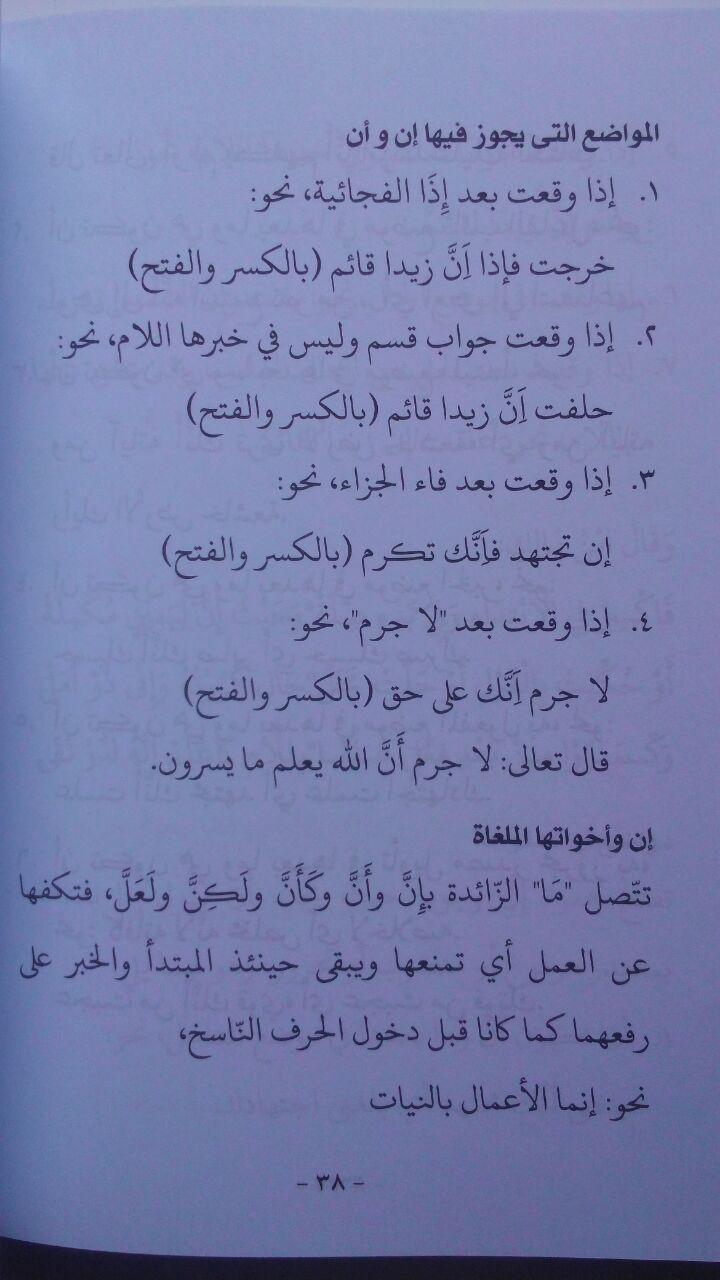 المواضع التى يجوز فيها إن و أن
١. إذا وقعت بعد إِذَا الفجائية، نحو:
خرجت فإذا اَِنَّ زيدا قائم (بالكسر والفتح)
٢. إذا وقعت جواب قسم وليس في خبرها اللام، نحو:
حلفت اَِنَّ زيدا قائم (بالكسر والفتح)
٣. إذا وقعت بعد فاء الجزاء، نحو:
إن تجتهد فاَِنَّك تكرم (بالكسر والفتح)
٤. إذا وقعت بعد "لا جرم"، نحو:
لا جرم اَِنَّك على حق (بالكسر والفتح)
قال تعالى: لا جرم أَنَّ الله يعلم ما يسرون.
إن وأخواتها الملغاة
تتّصل "مَا" الزّائدة بِإِنَّ وأَنَّ وكَأَنَّ ولَكِنَّ ولَعَلَّ، فتكفها
عن العمل أي تمنعها ويبقى حينئذ المبتدأ والخبر على
رفعهما كما كانا قبل دخول الحرف النّاسخ،
نحو: إنما الأعمال بالنيات
- ٣٨ -